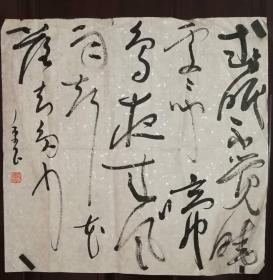 春眠不觉晓
处处啼
鸟夜来风
雨声花
落知多少